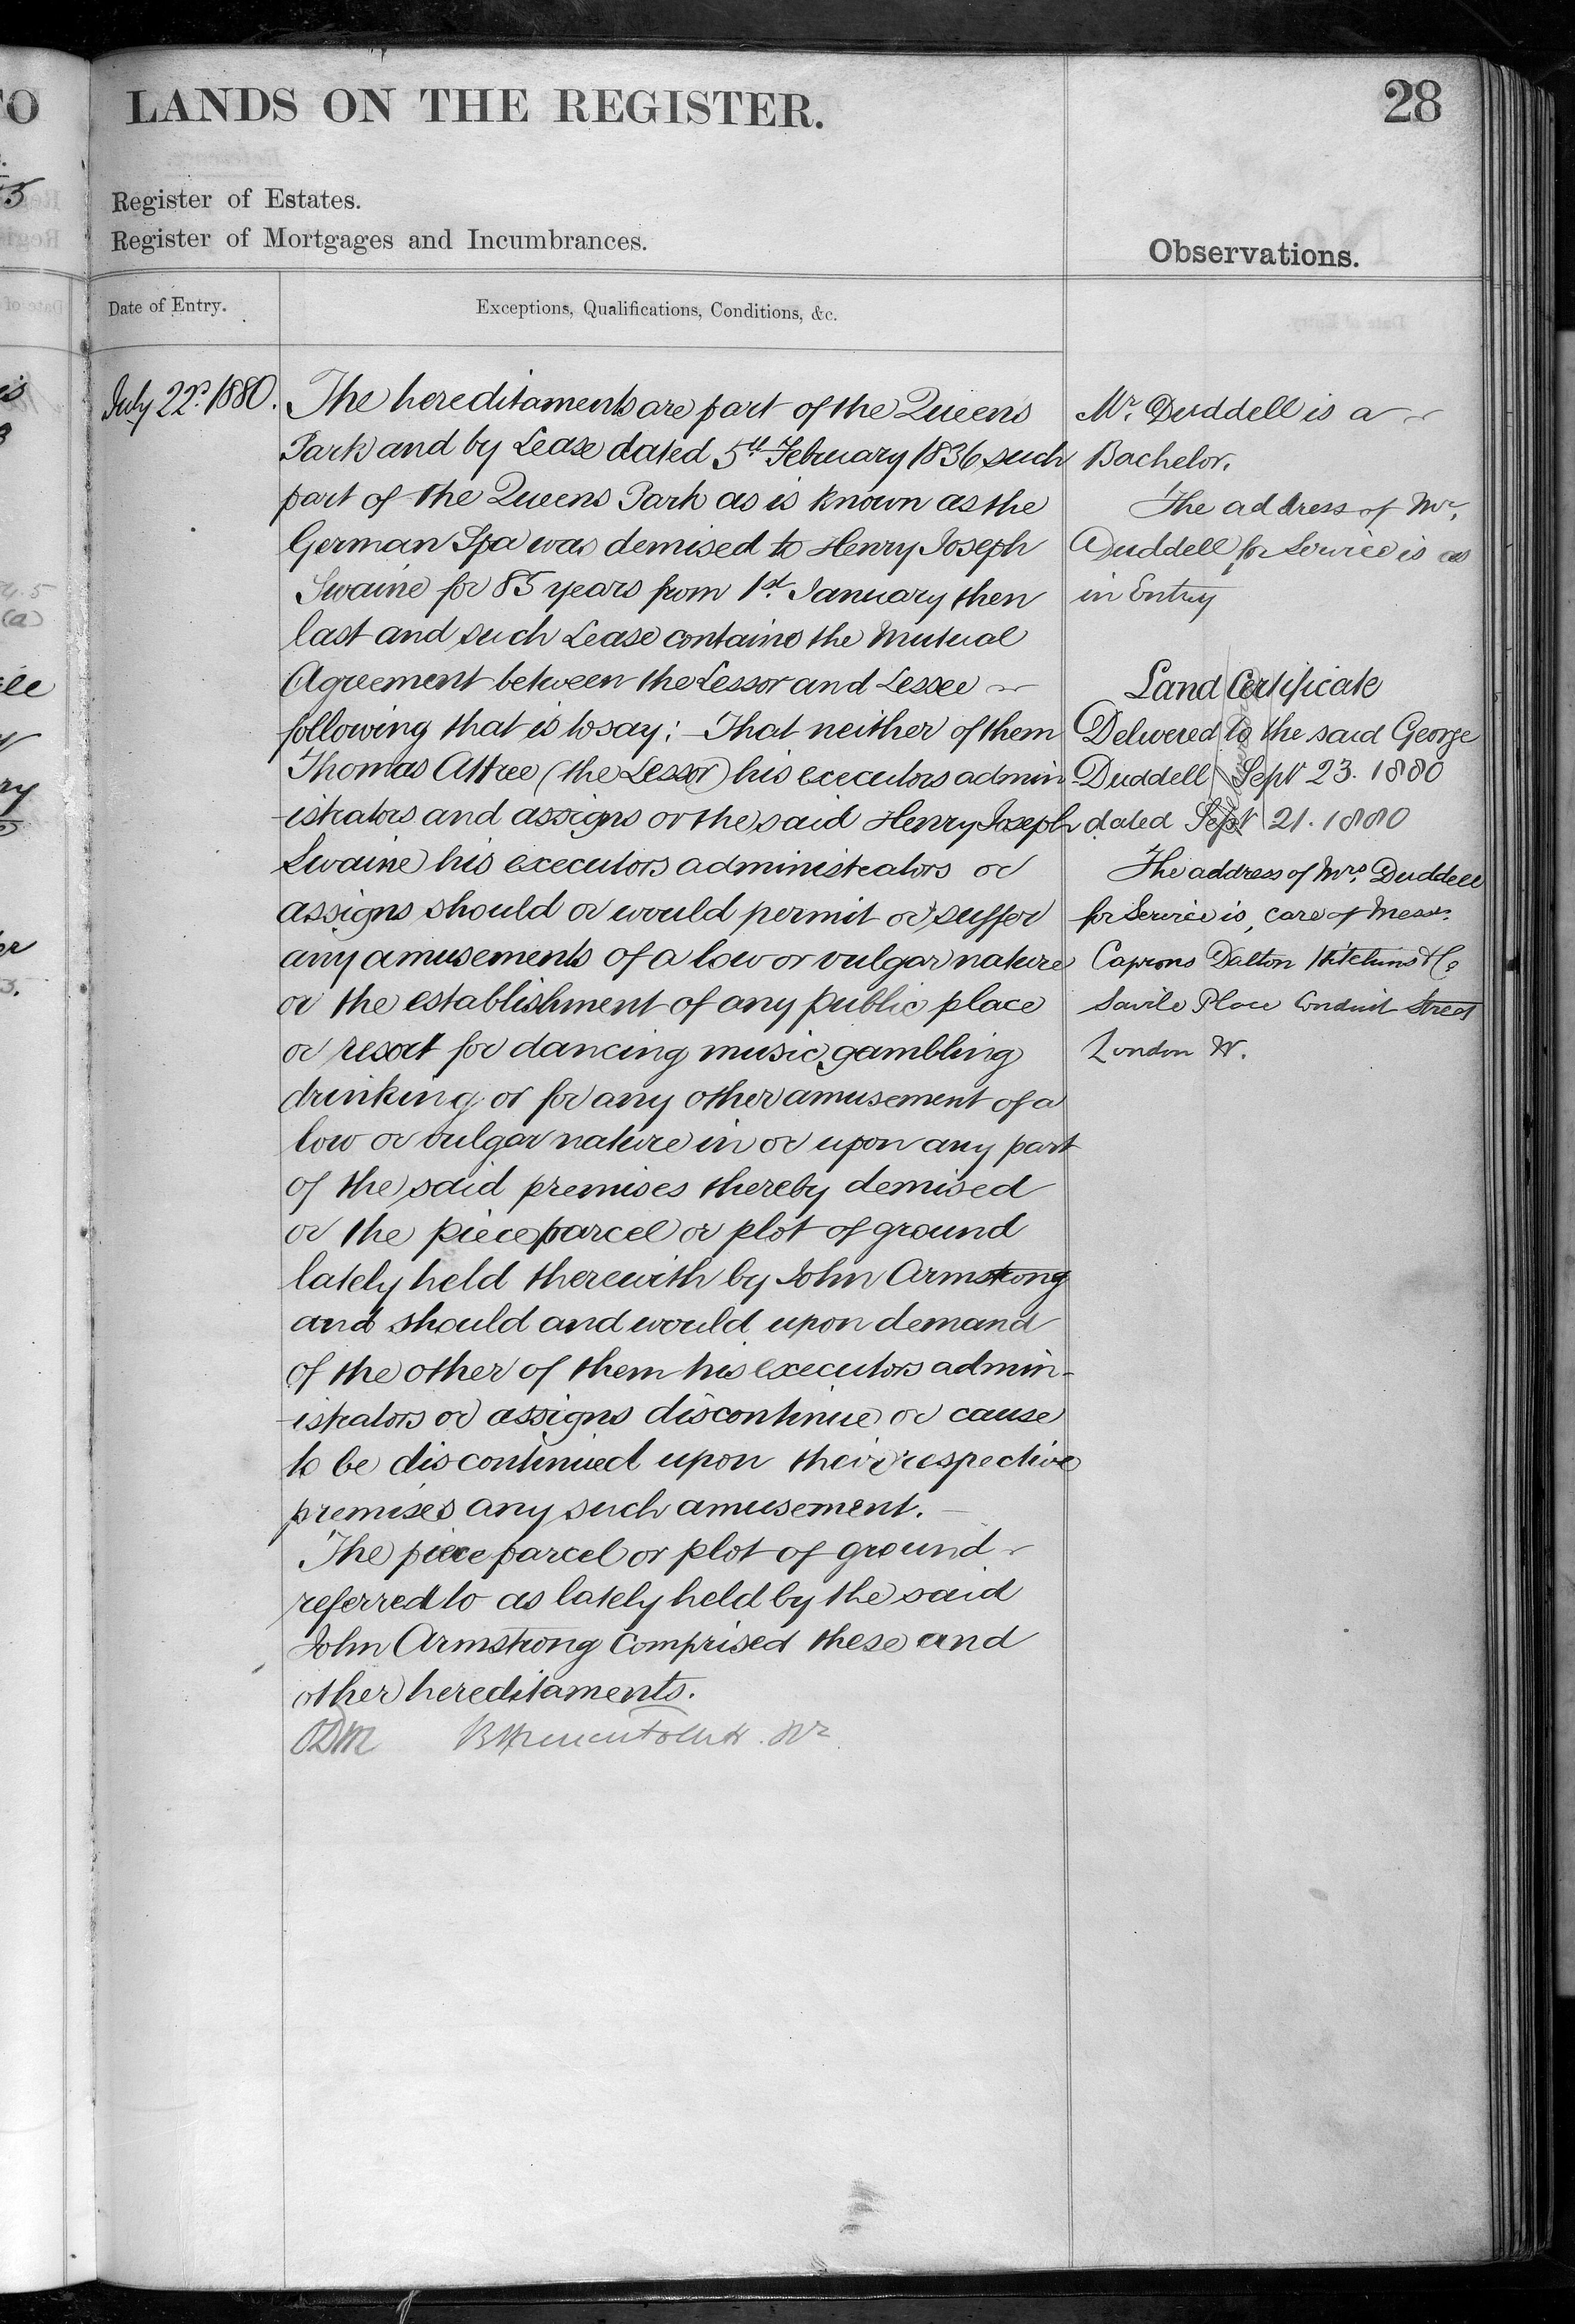 LANDS ON THE REGISTER.
28
Register of Estates.
Register of Mortgages and Incumbrances.
Observations.
Date of Entry.
Exceptions, Qualifications, Conditions, &c.
July 22nd 1880.
The hereditaments are part of the Queens
Park and by Lease dated 5th February 1836 such
part of the Queens Park as is known as the
German Spa was demised to Henry Joseph
Swaine for 85 years from 1st January then
last and such Lease contains the Mutual
Agreement between the Lessor and Lessee
following that is to say: – That neither of them
Thomas Attree (the Lessor) his executors admin
istrators and assigns or the said Henry Joseph
Swaine his executors administrators or
assigns should or would permit or suffer
any amusements of a low or vulgar nature
or the establishment of any public place
or resort for dancing music, gambling
drinking or for any other amusement of a
low or vulgar nature in or upon any part
of the said premises thereby demised
or the piece parcel or plot of ground
lately held therewith by John Armstrong
and should and would upon demand
of the other of them his executors admin-
istrators or assigns discontinue or cause
to be discontinued upon their respective
premises any such amusement. –
The piece parcel or plot of ground
referred to as lately held by the said
John Armstrong comprised these and
other hereditaments.
Mr. Duddell is a
Bachelor.
The address of Mr.
Duddell for Service is as
in Entry
Land Certificate
Delivered to the said George
Duddell Sept 23. 1880
dated Sept 21. 1880
The address of Mrs. Duddell
for Service is, care of Messrs.
Caprons Dalton Hitchins & Co
Savile Place Conduit Street
London W.